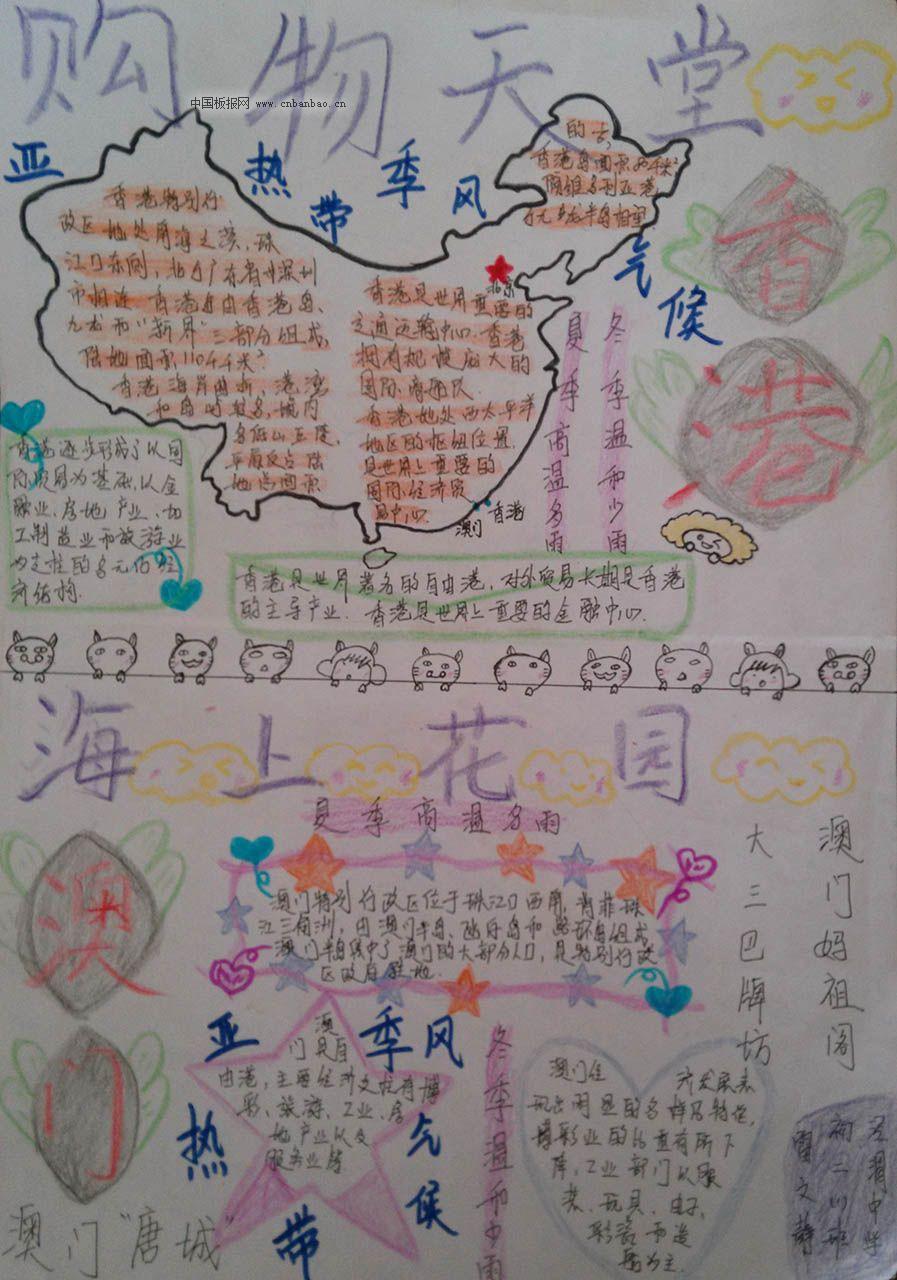 购物天堂
中国板报网 www.cnbanbao.cn
亚热带季风气候
香港特别行
政区地处南海之滨,珠
江口东侧,北与广东省深圳
市相连 香港岛由香港岛、
九龙和"新界"三部分组成,
陆地面积1104千米²
香港海岸曲折,港湾
和岛屿较多,境内
多低山丘陵,
平原仅占陆
地总面积
的
香港是世界重要的
交通运输中心.香港
拥有规模庞大的
国际
香港地处西太平洋
地区的枢纽位置,
是世界上重要的
国际经济贸
易中心.
北京
澳门
香港
夏季高温多雨
冬季温和少雨
香港
香港逐步形成了以国
际贸易为基础,以金
融业、房地产业、加
工制造业和旅游业
为支柱的多元化经
济结构.
香港是世界著名的自由港,对外贸易长期是香港
的主导产业.香港是世界上重要的金融中心.
海上花园
夏季高温多雨
澳门
澳门特别行政区位于珠江口西岸,背靠珠
江三角洲,由澳门半岛、氹仔岛和路环岛组成.
澳门半岛集中了澳门的大部分人口,是特别行政
区政府驻地.
大三巴牌坊
澳门妈祖阁
亚热带季风气候
澳
门是自
由港,主要经济支柱有博
彩、旅游、工业、房
地产业以及
服务业等
冬季温和少雨
澳门经济发展表
现出明显的多样及特征,
博彩业的比重有所下
降,工业部门以服
装、玩具、电子、
彩瓷和造
为主.
澳门"唐城"
中学
初二
文静